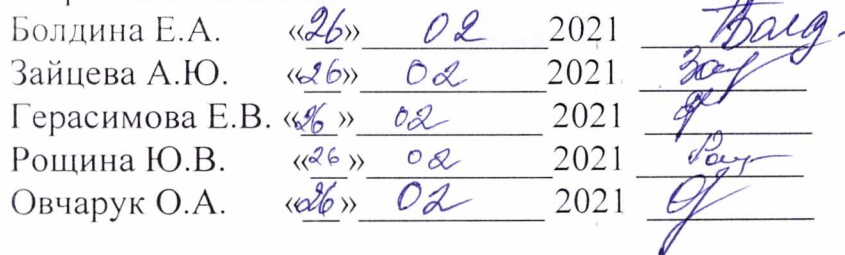 Болдина Е.А. «26» 02 2021 Болд.
Зайцева А.Ю. «26» 02 2021 Зай
Герасимова Е.В. «26» 02 2021
Рощина Ю.В. «26» 02 2021 Рощ
Овчарук О.А. «26» 02 2021